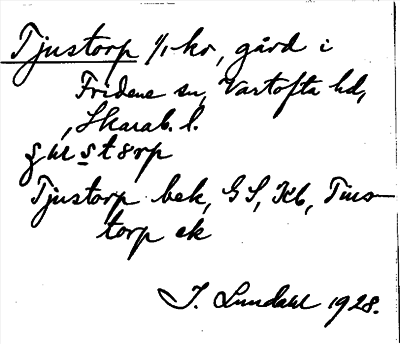 Tjustorp 1/1 kr, gård i
Fridene sn, Vartofta hd,
, Skarab. l.
st8rp
Tjustorp bek, GS, Kb, Tius-
torp ek
J. Lundahl 1928.